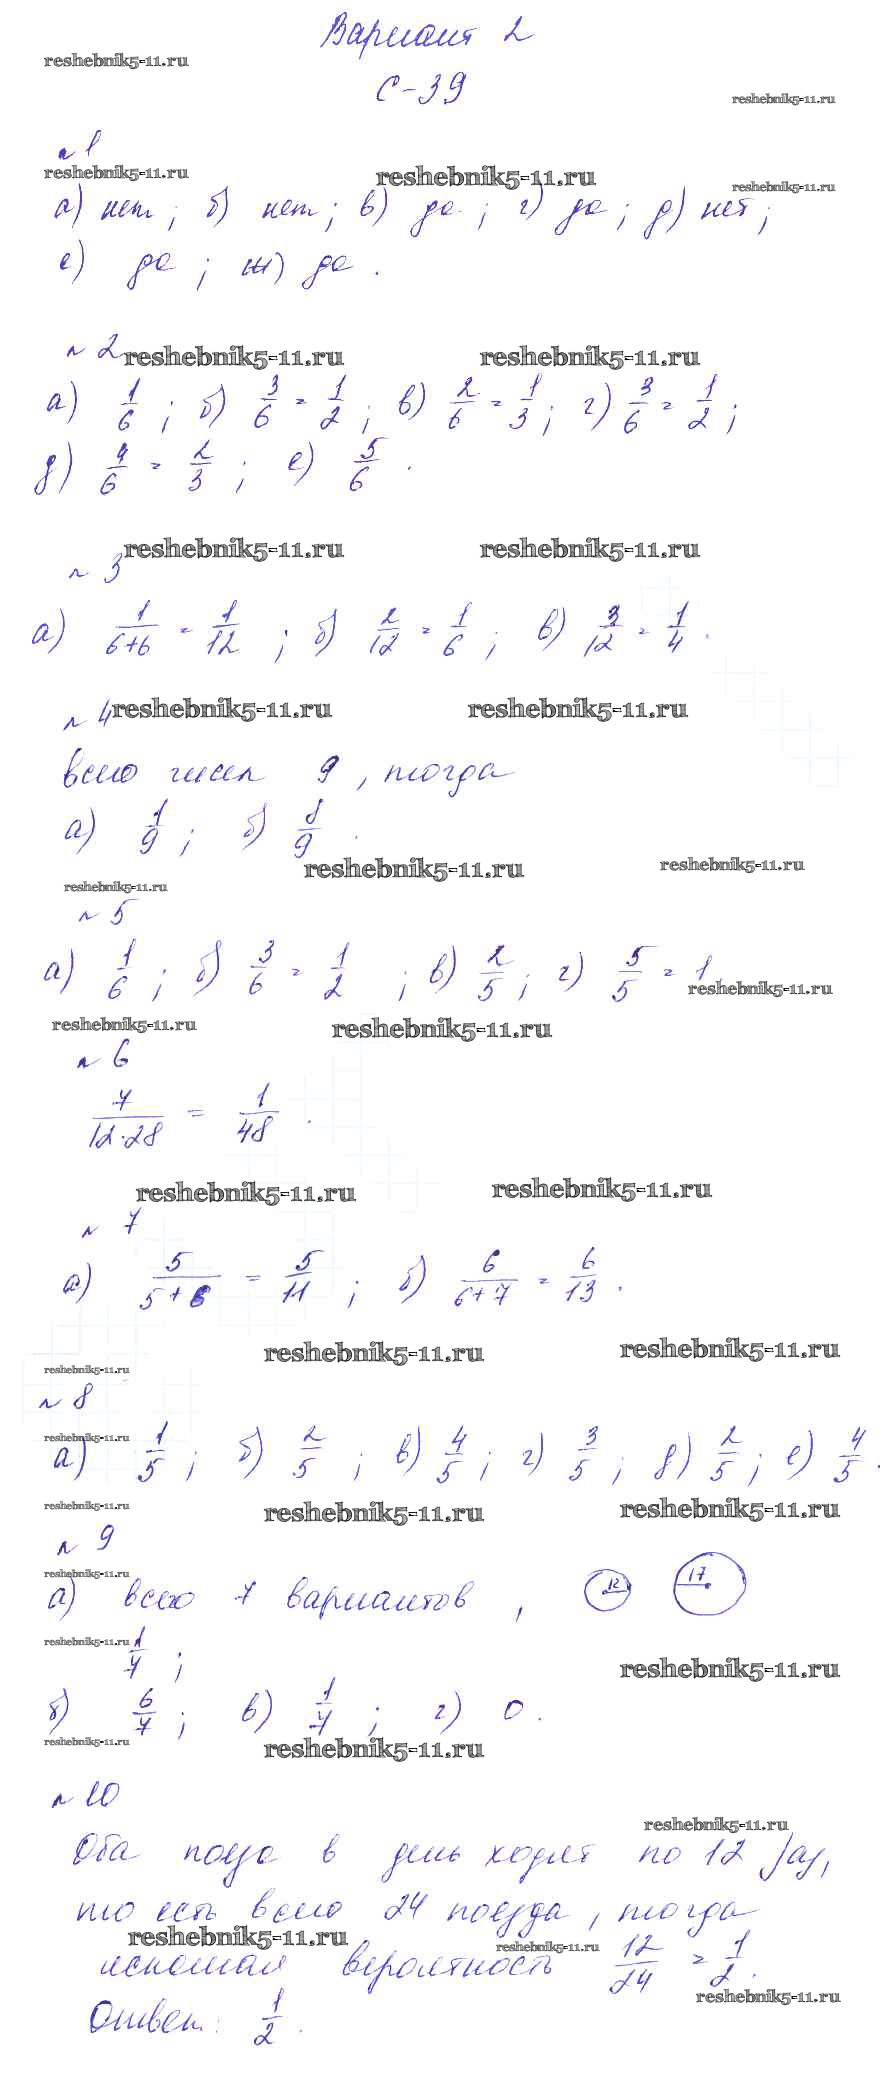 Вариант 2
reshebnik5-11.ru
С-39
reshebnik5-11.ru
№ 1
reshebnik5-11.ru reshebnik5-11.ru reshebnik5-11.ru
а) нет ; б) нет ; в) да ; г) да ; д) нет ;
е) да ; ж) да .
№ 2 reshebnik5-11.ru reshebnik5-11.ru
а) 1/6 ; б) 3/6 = 1/2 ; в) 2/6 = 1/3 ; г) 3/6 = 1/2 ;
д) 4/6 = 2/3 ; е) 5/6 .
reshebnik5-11.ru reshebnik5-11.ru
№ 3
а) 1/(6+6) = 1/12 ; б) 2/12 = 1/6 ; в) 3/12 = 1/4 .
№ 4 reshebnik5-11.ru reshebnik5-11.ru
всего чисел 9 , тогда
а) 1/9 ; б) 8/9 .
reshebnik5-11.ru reshebnik5-11.ru
reshebnik5-11.ru
№ 5
а) 1/6 ; б) 3/6 = 1/2 ; в) 2/5 ; г) 5/5 = 1
reshebnik5-11.ru
reshebnik5-11.ru reshebnik5-11.ru
№ 6
7/(12·28) = 1/48 .
reshebnik5-11.ru reshebnik5-11.ru
№ 7
а) 5/(5+6) = 5/11 ; б) 6/(6+7) = 6/13 .
reshebnik5-11.ru reshebnik5-11.ru
reshebnik5-11.ru
№ 8
reshebnik5-11.ru
а) 1/5 ; б) 2/5 ; в) 4/5 ; г) 3/5 ; д) 2/5 ; е) 4/5 .
reshebnik5-11.ru reshebnik5-11.ru reshebnik5-11.ru
№ 9
reshebnik5-11.ru
а) всего 7 вариантов , 12 17
reshebnik5-11.ru
1/7 ;
reshebnik5-11.ru
б) 6/7 ; в) 1/7 ; г) 0 .
reshebnik5-11.ru reshebnik5-11.ru
№ 10
reshebnik5-11.ru
Оба поезда в день ходят по 12 раз,
то есть всего 24 поезда , тогда
reshebnik5-11.ru reshebnik5-11.ru
искомая вероятность 12/24 = 1/2 .
reshebnik5-11.ru
Ответ: 1/2 .